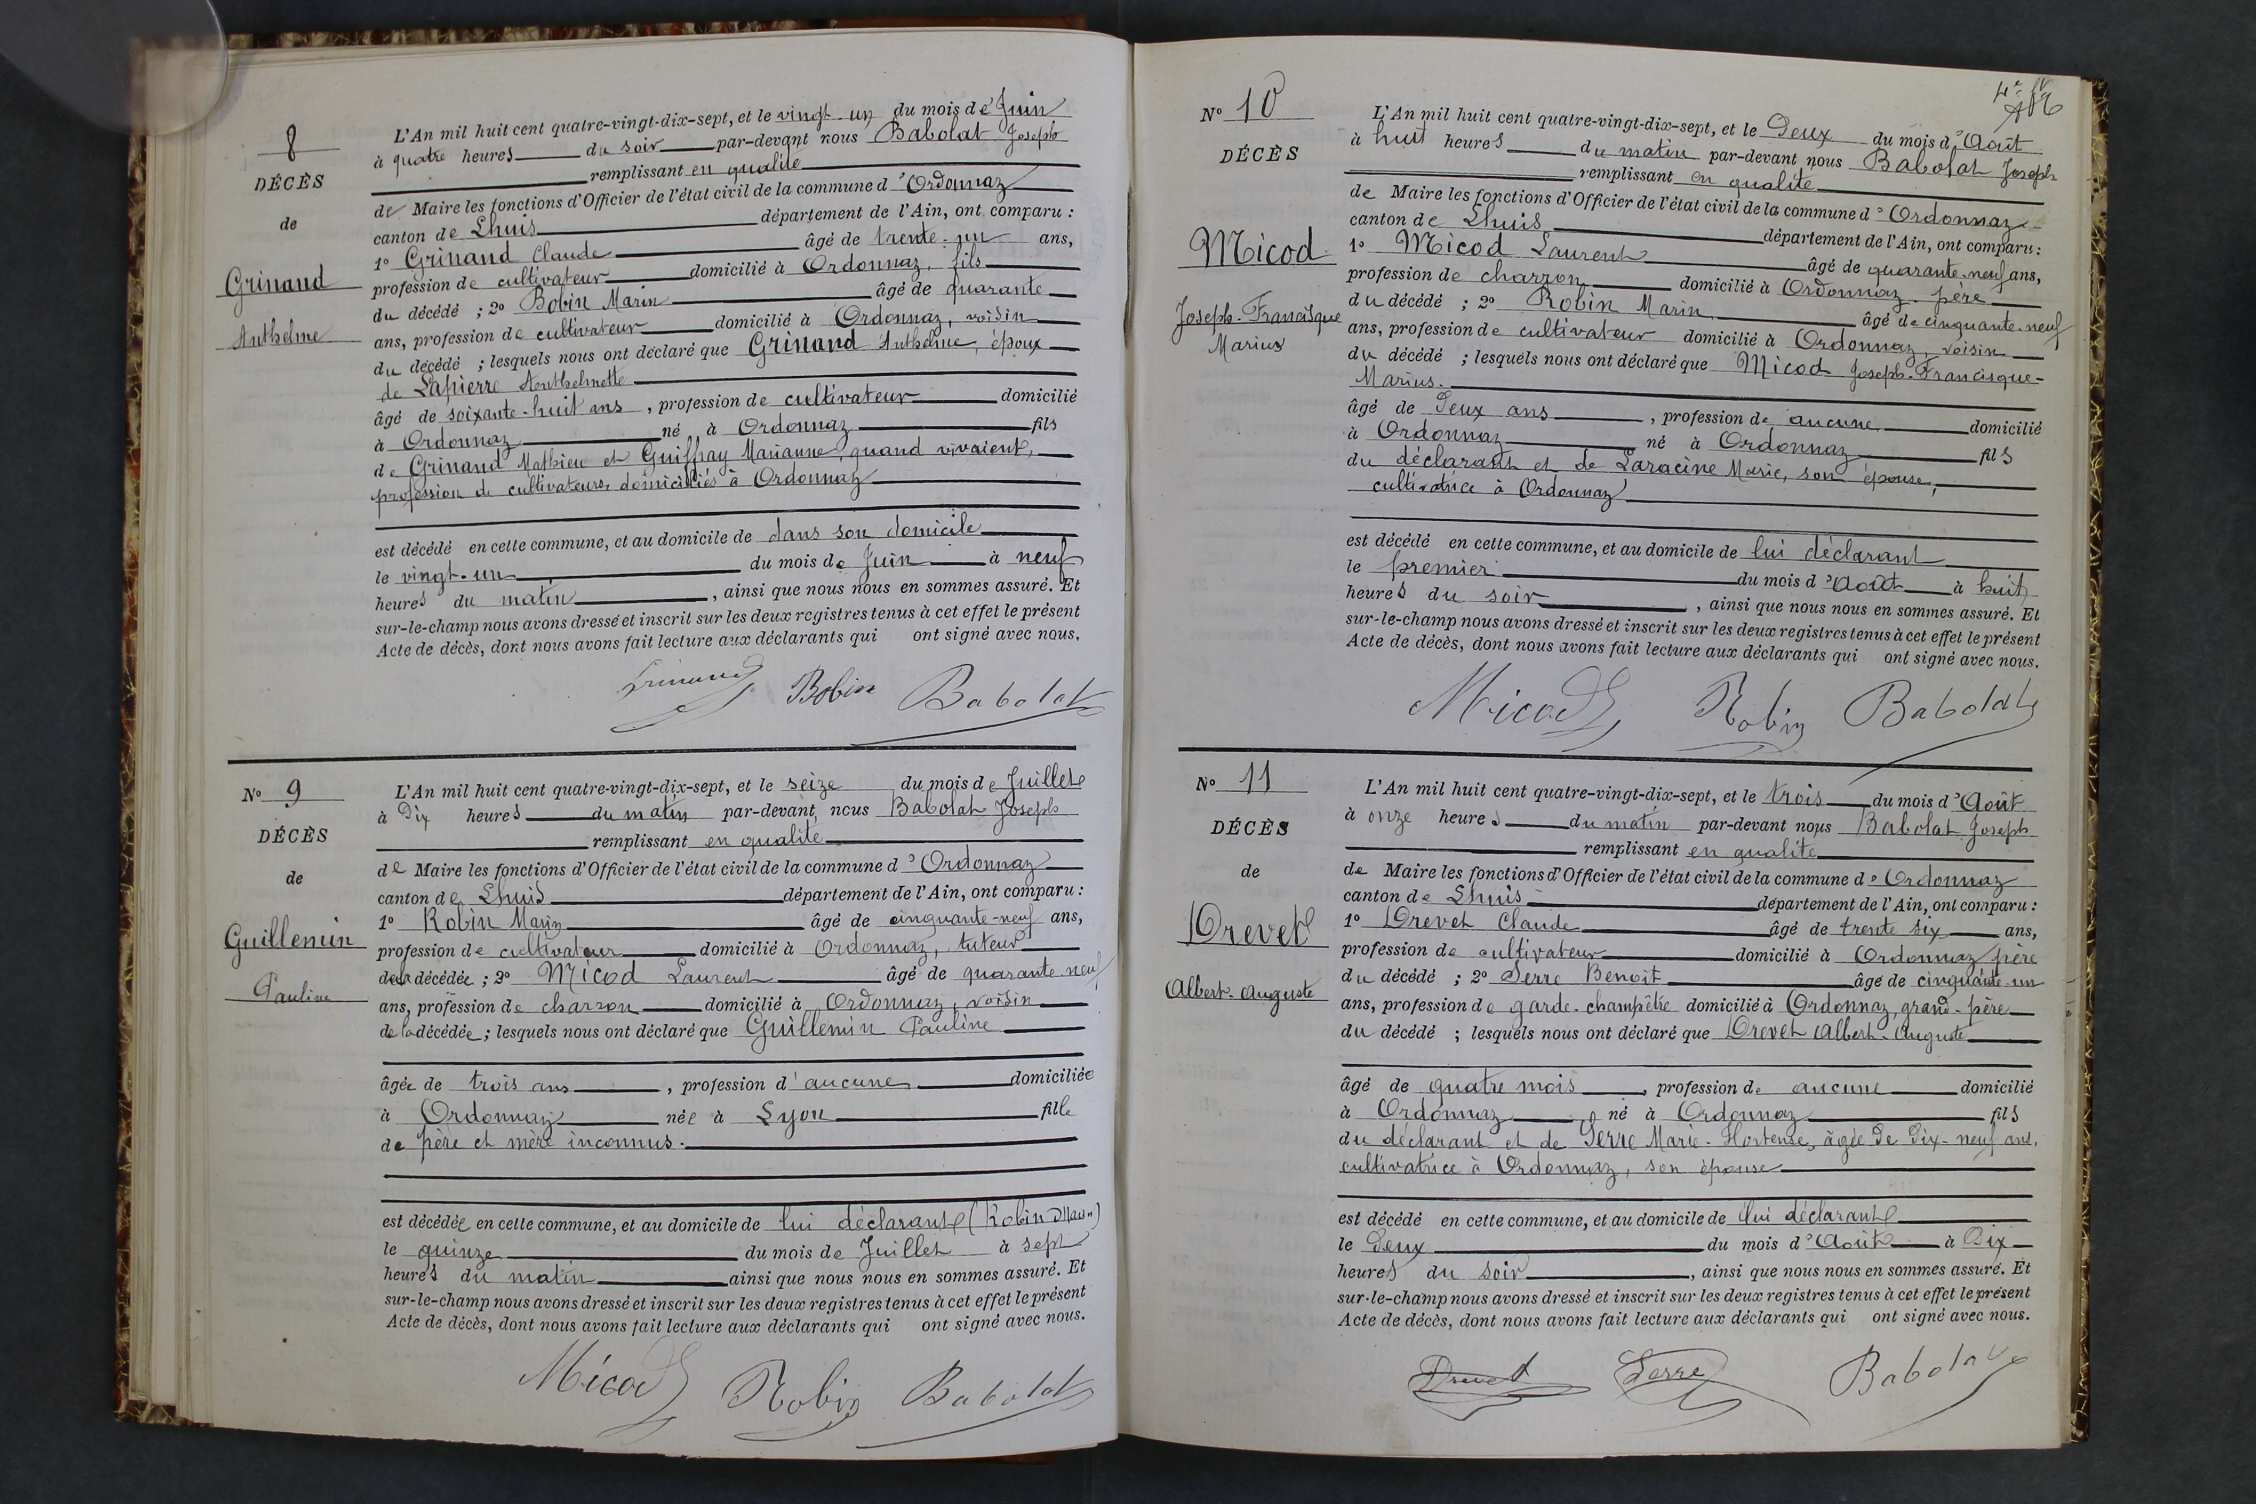 8
DÉCÈS
de
Grinand
Anthelme
L'An mil huit cent quatre-vingt-dix-sept, et le vingt-un du mois de Juin
à quatre heures du soir par-devant nous Babolat Joseph
remplissant en qualité
de Maire les fonctions d'Officier de l'état civil de la commune d'Ordonnaz
canton de Lhuis département de l'Ain, ont comparu :
1º Grinand Claude âgé de trente-un ans,
profession de cultivateur domicilié à Ordonnaz, fils
du décédé ; 2º Bobin Marin âgé de quarante
ans, profession de cultivateur domicilié à Ordonnaz, voisin
du décédé ; lesquels nous ont déclaré que Grinand Anthelme, époux
de Lapierre Anthelmette
âgé de soixante-huit ans, profession de cultivateur domicilié
à Ordonnaz né à Ordonnaz fils
de Grinand Mathieu et Guiffray Marianne, quand vivaient,
profession de cultivateurs domiciliés à Ordonnaz
est décédé en cette commune, et au domicile de dans son domicile
le vingt-un du mois de Juin à neuf
heures du matin, ainsi que nous nous en sommes assuré. Et
sur-le-champ nous avons dressé et inscrit sur les deux registres tenus à cet effet le présent
Acte de décès, dont nous avons fait lecture aux déclarants qui ont signé avec nous.
Grinand Bobin Babolat
Nº 9
DÉCÈS
de
Guillemin
Pauline
L'An mil huit cent quatre-vingt-dix-sept, et le seize du mois de Juillet
à Dix heures du matin par-devant nous Babolat Joseph
remplissant en qualité
de Maire les fonctions d'Officier de l'état civil de la commune d'Ordonnaz
canton de Lhuis département de l'Ain, ont comparu :
1º Robin Marin âgé de cinquante-neuf ans,
profession de cultivateur domicilié à Ordonnaz, tuteur
de la décédée ; 2º Micod Laurent âgé de quarante-neuf
ans, profession de charron domicilié à Ordonnaz, voisin
de la décédée ; lesquels nous ont déclaré que Guillemin Pauline
âgée de trois ans, profession d'aucune domiciliée
à Ordonnaz née à Lyon fille
de père et mère inconnus.
est décédée en cette commune, et au domicile de lui déclarant (Robin Marin)
le quinze du mois de Juillet à sept
heures du matin ainsi que nous nous en sommes assuré. Et
sur-le-champ nous avons dressé et inscrit sur les deux registres tenus à cet effet le présent
Acte de décès, dont nous avons fait lecture aux déclarants qui ont signé avec nous.
Micod Robin Babolat
Nº 10
DÉCÈS
Micod
Joseph-Francisque
Marius
L'An mil huit cent quatre-vingt-dix-sept, et le Deux du mois d'Août
à huit heures du matin par-devant nous Babolat Joseph
remplissant en qualité
de Maire les fonctions d'Officier de l'état civil de la commune d'Ordonnaz
canton de Lhuis département de l'Ain, ont comparu :
1º Micod Laurent âgé de quarante-neuf ans,
profession de charron domicilié à Ordonnaz, père
du décédé ; 2º Robin Marin âgé de cinquante-neuf
ans, profession de cultivateur domicilié à Ordonnaz, voisin
du décédé ; lesquels nous ont déclaré que Micod Joseph-Francisque-
Marius.
âgé de Deux ans, profession de aucune domicilié
à Ordonnaz né à Ordonnaz fils
du déclarant et de Laracine Marie, son épouse,
cultivatrice à Ordonnaz
est décédé en cette commune, et au domicile de lui déclarant
le premier du mois d'Août à huit
heures du soir, ainsi que nous nous en sommes assuré. Et
sur-le-champ nous avons dressé et inscrit sur les deux registres tenus à cet effet le présent
Acte de décès, dont nous avons fait lecture aux déclarants qui ont signé avec nous.
Micod Robin Babolat
Nº 11
DÉCÈS
de
Drevet
Albert-Auguste
L'An mil huit cent quatre-vingt-dix-sept, et le trois du mois d'Août
à onze heures du matin par-devant nous Babolat Joseph
remplissant en qualité
de Maire les fonctions d'Officier de l'état civil de la commune d'Ordonnaz
canton de Lhuis département de l'Ain, ont comparu :
1º Drevet Claude âgé de trente six ans,
profession de cultivateur domicilié à Ordonnaz père
du décédé ; 2º Serre Benoît âgé de cinquante-un
ans, profession de garde-champêtre domicilié à Ordonnaz, grand-père
du décédé ; lesquels nous ont déclaré que Drevet Albert-Auguste
âgé de quatre mois, profession de aucune domicilié
à Ordonnaz né à Ordonnaz fils
du déclarant et de Serre Marie-Hortense, âgée de Dix-neuf ans,
cultivatrice à Ordonnaz, son épouse
est décédé en cette commune, et au domicile de lui déclarant
le Deux du mois d'Août à Dix
heures du soir, ainsi que nous nous en sommes assuré. Et
sur-le-champ nous avons dressé et inscrit sur les deux registres tenus à cet effet le présent
Acte de décès, dont nous avons fait lecture aux déclarants qui ont signé avec nous.
Drevet Serre Babolat